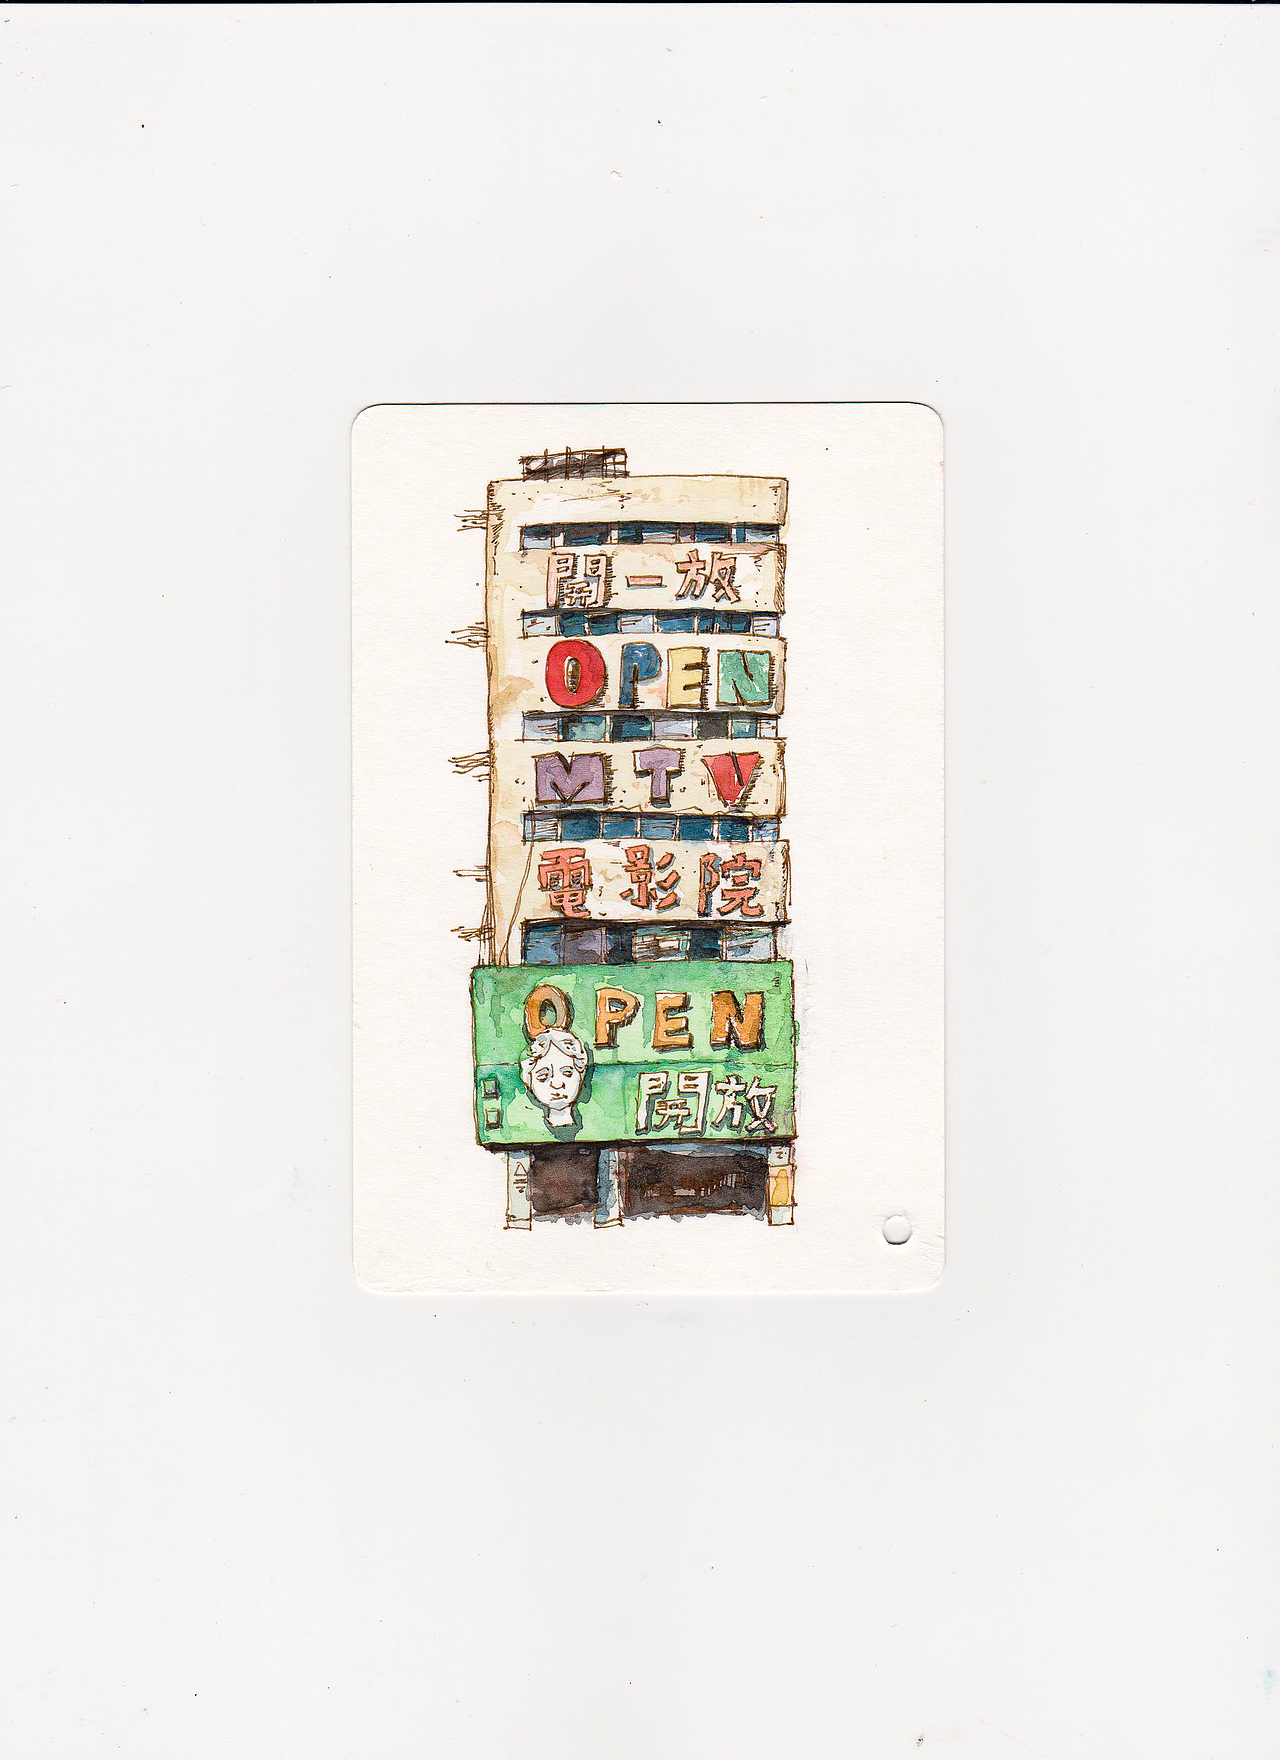 開一放
OPEN
MTV
電影院
OPEN
開放